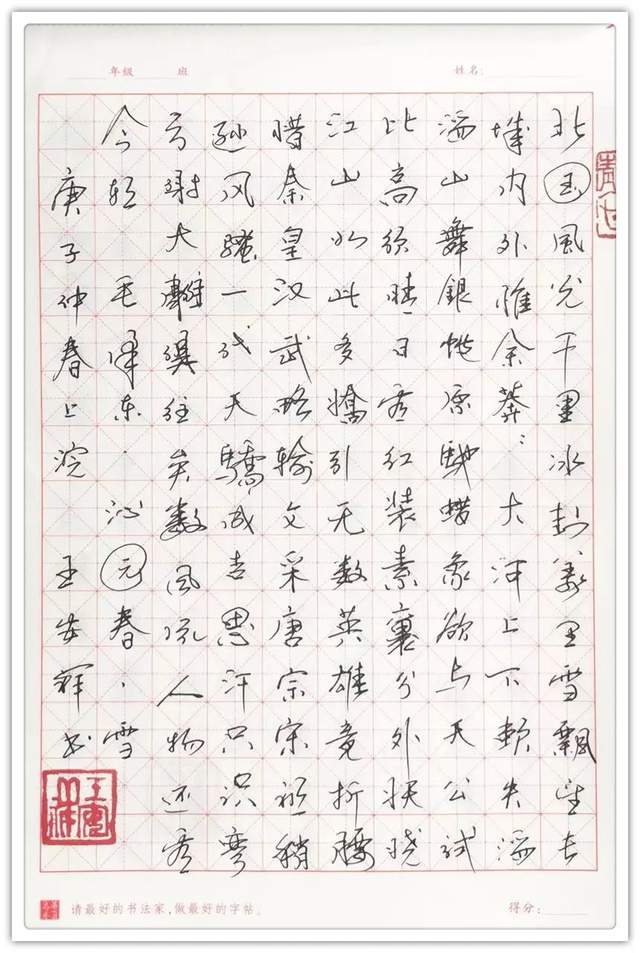 年级 班 姓名:
北国風光千里冰封万里雪飄望长
城内外惟余莽々大河上下顿失滔
滔山舞銀蛇原馳蜡象欲与天公试
比高须晴日看红装素裹分外妖娆
江山如此多嬌引无数英雄竟折腰
惜秦皇汉武略输文采唐宗宋祖稍
逊风骚一代天驕成吉思汗只识弯
弓射大雕俱往矣数風流人物还看
今朝 毛泽东·沁园春·雪
庚子仲春上浣 王安书
请最好的书法家,做最好的字帖。 得分: